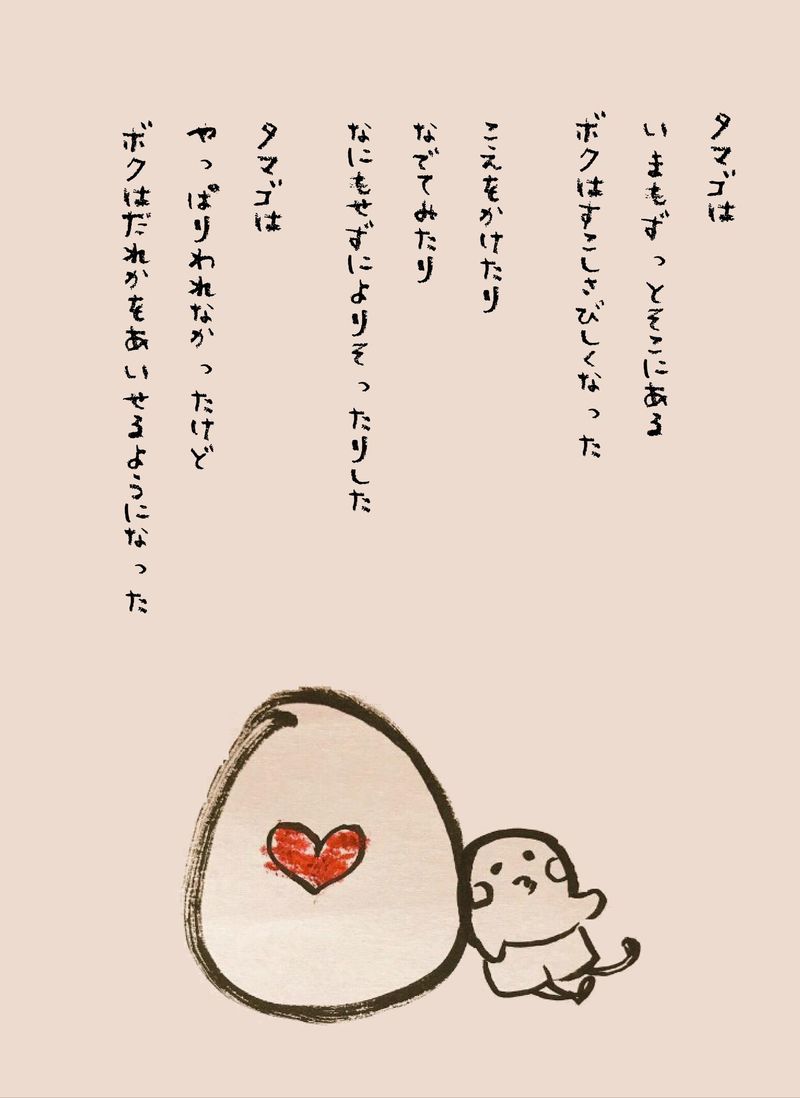 タマゴは
いまもずっとそこにある
ボクはすこしさびしくなった
こえをかけたり
なでてみたり
なにもせずによりそったりした
タマゴは
やっぱりわれなかったけど
ボクはだれかをあいせるようになった